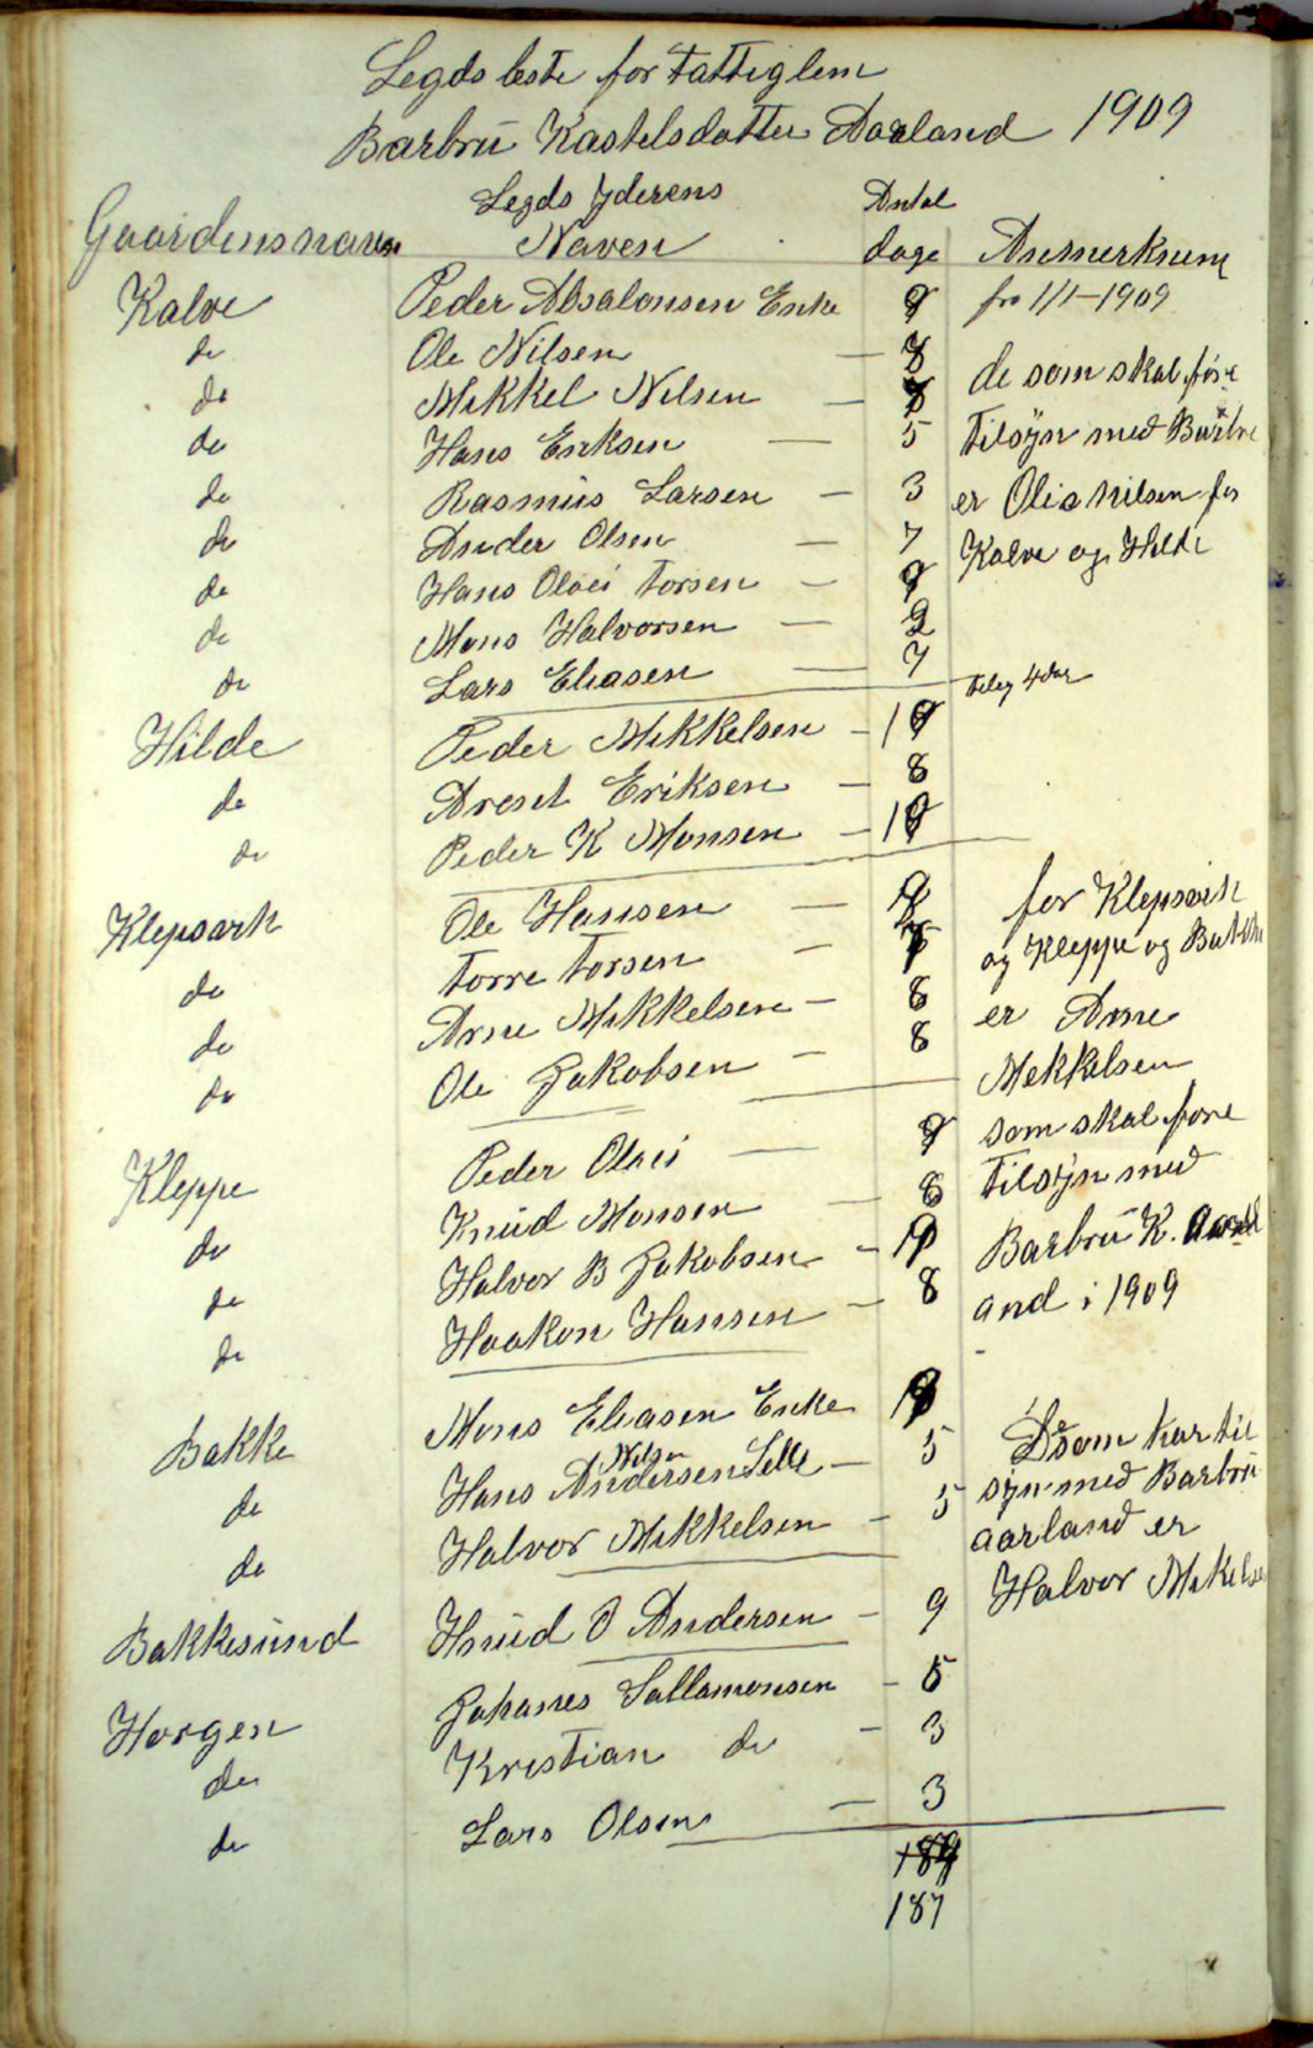 Legds leste for Fattiglem
Barbrü Kastelsdatter Aarland 1909
Gaardensnavn Legds Yderens Naven Antal dage Anmerkning
Kalve Peder Absalonsen Enke 8 fra 1/1-1909
do Ole Nilsen — 8
do Mikkel Nilsen — de som skal føre
do Hans Eriksen — 5 Tilsÿn med Barbrü
do Rasmüs Larsen — 3 er Olia Nilsen for
do Ander Olsen — 7 Kalve og Hilde
do Hans Olaei Torsen — 9
do Mons Halvorsen — 2
do Lars Eliasen — 7
Hilde Peder Mikkelsen — 10 Tileg 4 dar
do Arent Eriksen — 8
do Peder K Monsen — 10
Klepsvik Ole Hansen — for Klepsvik
do Torre Torsen — og Kleppe og Bakke
do Arne Mikkelsen — 8 er Arne
do Ole Jakobsen — 8 Mekkelsen
Kleppe Peder Olaei — 9 som skal føre
do Knüd Monsen — 8 Tilsÿn med
do Halvor B Jakobsen — Barbrü K. Aarl
do Haakon Hansen — 8 and i 1909
Bakke Mons Eliasen Enke
do Hans Andersen Selle — 5 De som har til
Nilsen
do Halvor Mikkelsen — 5 sÿn med Barbrü
aarland er
Bakkesünd Knüd O Andersen — 9 Halvor Mikelse
Horgen Johanes Sallamonsen — 5
do Kristian do — 3
do Lars Olsen — 3
184
187